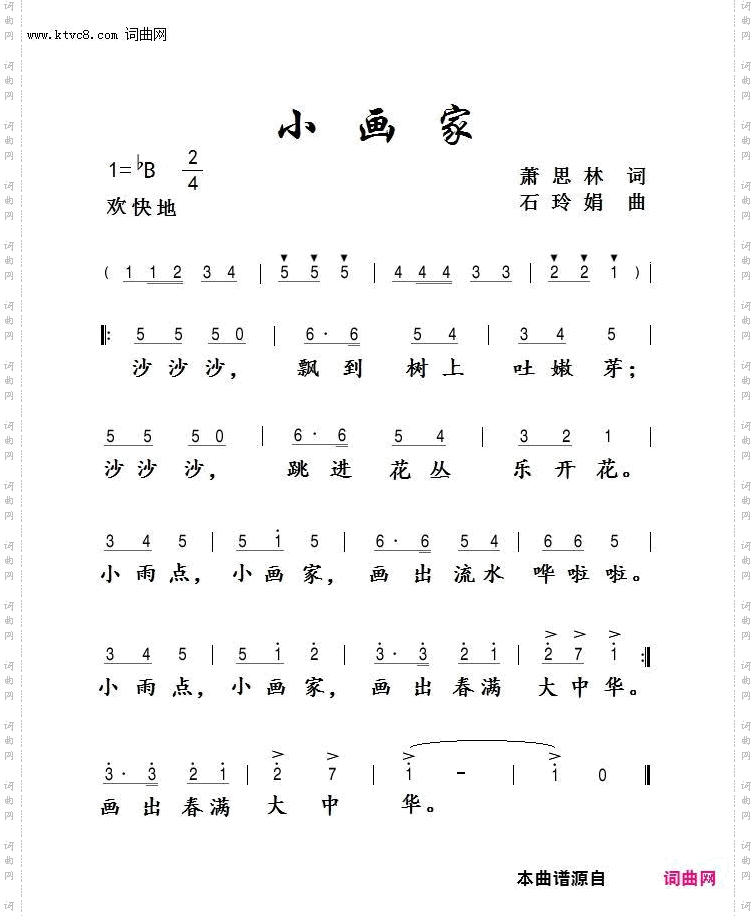 www.ktvc8.com 词曲网
小画家
1=♭B 2/4
萧思林 词
欢快地
石玲娟 曲
( 1 1 2 3 4 | 5 5 5 | 4 4 4 3 3 | 2 2 1 ) |
‖: 5 5 5 0 | 6· 6 5 4 | 3 4 5 |
沙沙沙， 飘到树上 吐嫩芽；
5 5 5 0 | 6· 6 5 4 | 3 2 1 |
沙沙沙， 跳进花丛 乐开花。
3 4 5 | 5 i 5 | 6· 6 5 4 | 6 6 5 |
小雨点， 小画家， 画出流水 哗啦啦。
3 4 5 | 5 i 2̇ | 3̇· 3̇ 2̇ i | 2̇ 7 i :‖
小雨点， 小画家， 画出春满 大中华。
3̇· 3̇ 2̇ i | 2̇ 7 | i – | i 0 ‖
画出春满 大中 华。
本曲谱源自 词曲网